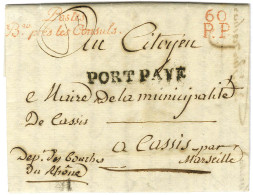 Poste
Bau près les Consuls.
60
P.P
Au Citoyen
PORT PAYÉ
Maire de la municipalité
De Cassis
à Cassis par
Marseille
Dep. des Bouches
du Rhône